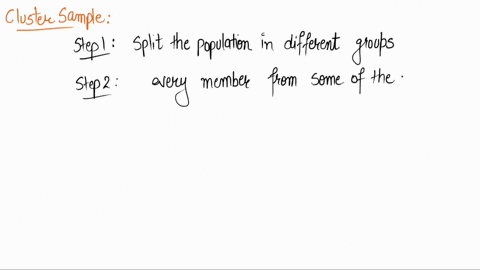 Cluster Sample:
Step 1: Split the population in different groups
Step 2: every member from some of the